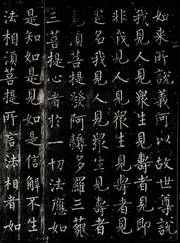 如來所說義何以故世尊說
我見人見衆生見壽者見即
非我見人見衆生見壽者見
是名我見人見衆生見壽者
見須菩提發阿耨多羅三藐
三菩提心者於一切法應如
是知如是見如是信解不生
法相須菩提所言法相者如